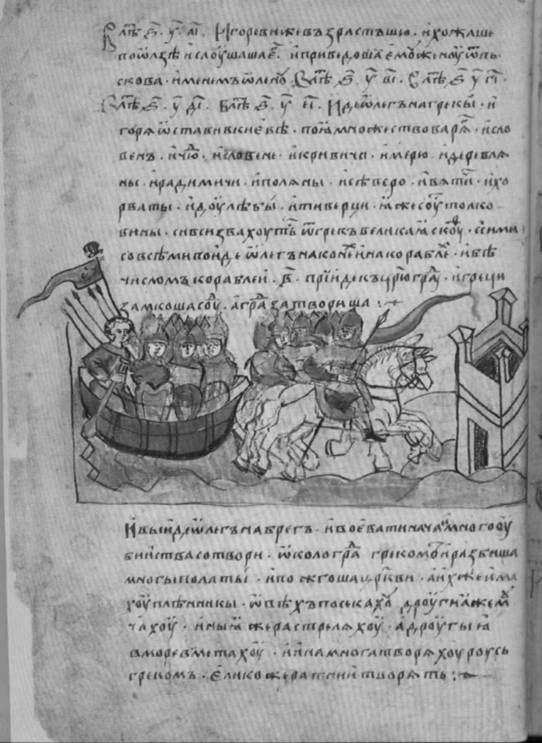 В лѣⷮ ҂ѕ҃. у҃. аі҃. Игореви же възрастъшю. и хожаше
по ѡлзѣ и слоушашаⷷ его. и приведоша емоу женоу ѿ пь
скова. именемъ ѡленоу. В лѣⷮ ҂ѕ҃. у҃. ві҃. В лѣⷮ ҂ѕ҃. у҃. гі҃.
В лѣⷮ ҂ѕ҃. у҃. ді҃. В лѣⷮ ҂ѕ҃. у҃. еі҃. Иде ѡлегъ на грекы. и
горѧ ѡстави в киевѣ. поѧ множество варѧⷢ. и сло
венъ. и чюⷣ. и словене. и кривичи. и мерю. и деревлѧ
ны. и радимичи. и полѧны. и сѣверо. и вѧтичи. и хо
рваты. и доулѣбы. и тиверци. ꙗже соуⷮ толко
вины. си вси звахоуть ѿ грекъ великаѧ скоуⷴ. с сими
со всѣми поиде ѡлегъ на конеⷯ и на кораблеⷯ. и бѣ
числомъ кораблеи. ҂в҃. прїиде к црⷭюграⷣ. и греци
замкоша соуⷣ. а граⷣ затвориша :
И выиде ѡлегъ на брегъ. и воевати начаⷮ. и много оу
биииства сотвори. ѡколо граⷣ грекомъ. и разбиша
многы полаты. и пожгоша црⷭкви. а иⷯ же има
хоу плѣнникы. ѡвѣхъ посѣкахоу. дроугиѧ же моⷱ
чахоу. иныѧ же растрелѧхоу. а дроугыѧ
в море вметахоу. и ина многа творѧхоу роусь
грекомъ. елико же ратнии творѧть :